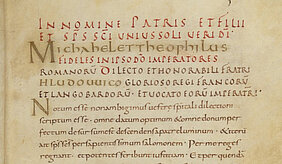 IN NOMINE PATRIS ET FILII
ET SPS SCI UNIUS SOLI VERI DI
Michahel et Theophilus
FIDELES IN IPSO DO IMPERATORES
ROMANORU DILECTO ET HONORABILI FRATRI
HLUDOUUICO GLORIOSO REGI FRANCORU
ET LANGOBARDORU ET UOCATO EORU IMPERATRI
Notum esse
scriptum esse omne datum optimum & omne donum per
fectum de sursum esse descendens a patre luminum & &erni
ait sp in sapientissimum salomonem Per me reges
regnant et potentes scribunt iustitiam Et per quendam